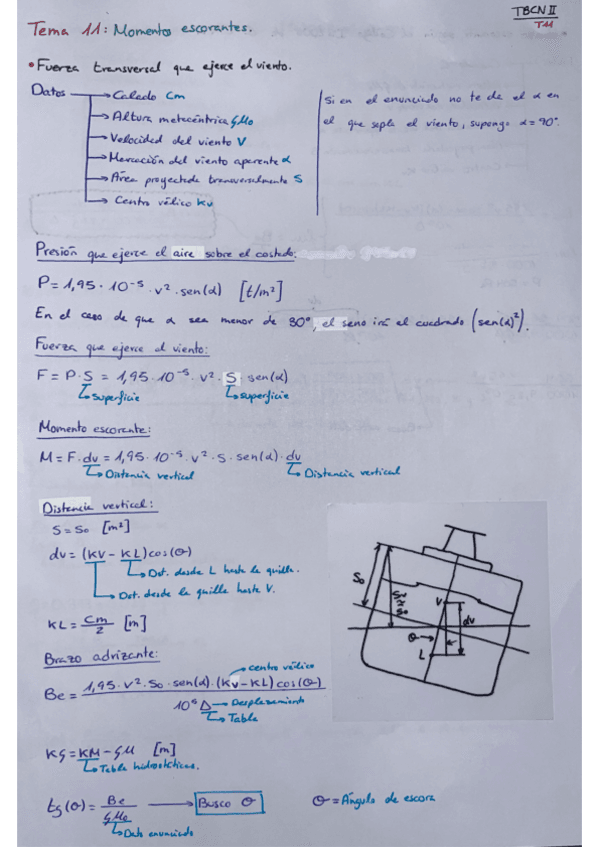 TBCN II
T11
Tema 11: Momentos escorantes.
• Fuerza transversal que ejerce el viento.
Datos → Calado Cm
→ Altura metacéntrica GMo
→ Velocidad del viento V
→ Marcación del viento aparente α
→ Área proyectada transversalmente S
→ Centro vélico Kv
Si en el enunciado no te da el α en
el que sopla el viento, supongo α = 90°.
Presión que ejerce el aire sobre el costado:
P = 1,95 · 10⁻⁵ · v² · sen(α) [t/m²]
En el caso de que α sea menor de 30°, el seno irá el cuadrado (sen(α)²).
Fuerza que ejerce el viento:
F = P · S = 1,95 · 10⁻⁵ · v² · S · sen(α)
↳ Superficie ↳ superficie
Momento escorante:
M = F · dv = 1,95 · 10⁻⁵ · v² · s · sen(α) · dv
↳ Distancia vertical ↳ Distancia vertical
Distancia vertical:
S = So [m²]
dv = (KV - KL) cos(θ)
↳ Dst. desde L hasta la quilla.
↳ Dst. desde la quilla hasta V.
KL = Cm/2 [m]
Brazo adrizante:
Be = 1,95 · v² · So · sen(α) · (Kv - KL) cos(θ) / 10⁵ Δ
→ centro vélico
→ Desplazamiento
↳ Tabla
KG = KM - GM [m]
↳ Tabla hidrostáticas.
tg(θ) = Be / GMo → Busco θ
↳ Dato enunciado
θ = Ángulo de escora
So
V
dv
θ
L